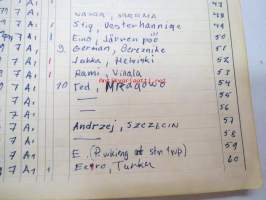 7 A1 48
7 A1 Stig, Vesterhanninge 49
7 A1 Eino, Järvenpää 50
7 A1 9. German, Berezniki 51
7 A1 Jukka, Helsinki 52
7 A1 Rami, Viiala 53
7 A1 10 Ted, MRAGOWO 54
7 A1 — 55
7 A1 — 56
7 A1 Andrzej, SZCZECIN 57
7 A1 — 58
7 A1 E. 59
7 A1 Eero, Turku 60